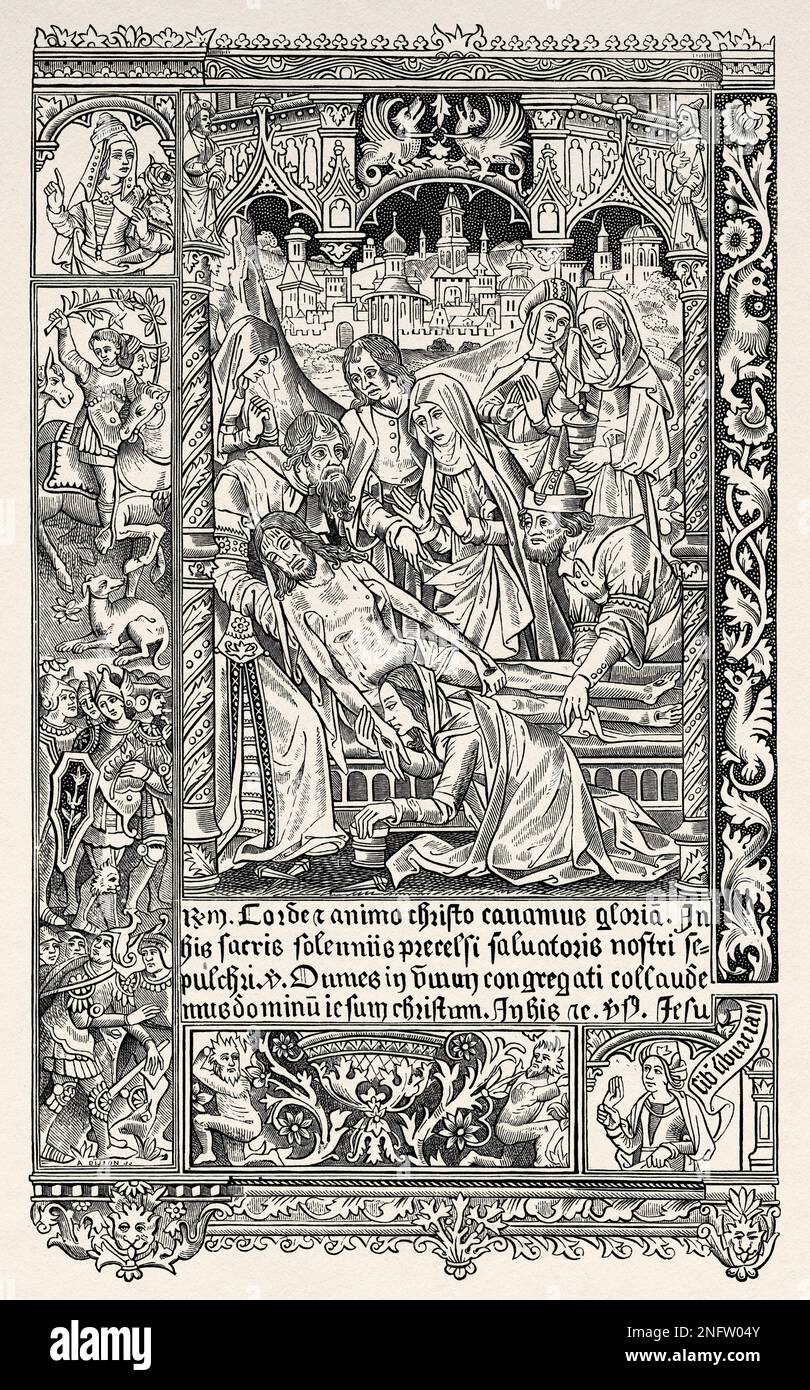 rem. Corde ⁊ animo christo canamus gloriã. In
his sacris solenniis precelsi saluatoris nostri se-
pulchri. ℣. Omnes in vnum congregati collaude
mus dominũ iesum christum. In his ⁊c. ℣. Jesu
A
alamy
Image ID: 2NFW04Y
www.alamy.com